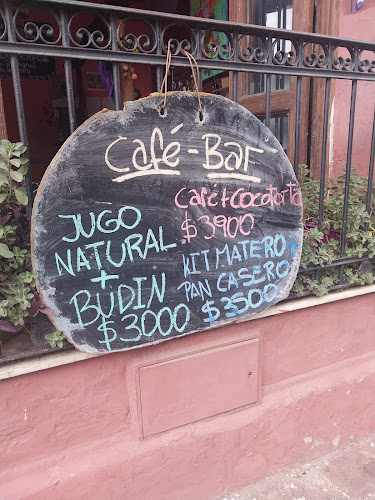 Café-Bar
JUGO
NATURAL
+
BUDIN
$3000
CAFE+COCOTORTA
$3900
KIT MATERO +
PAN CASERO
$3500